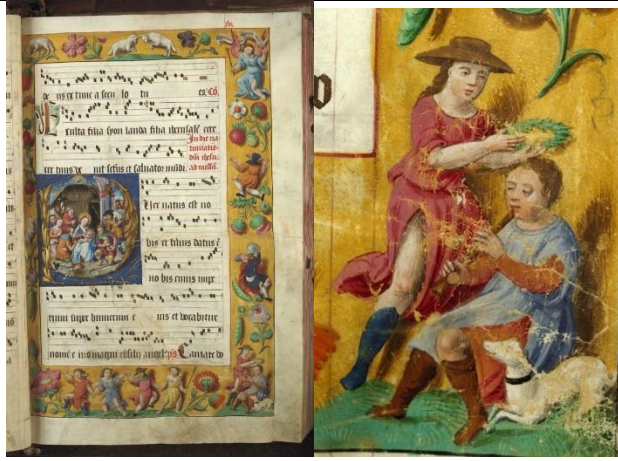 de us ex tunc a secu lo tu es. Cō.
Exulta filia syon lauda filia iherusalē ecce
In die na
tiuitatis
dñi ihesu
ad missā.
rex tuus ve nit sctūs et saluator mūdi.
Uer natus est no
bis et filius datus ē
no bis cuius impe
rium super humerum e ius et vocabitur
nomē e ius magni cōsilii angel9 ps Cantate do